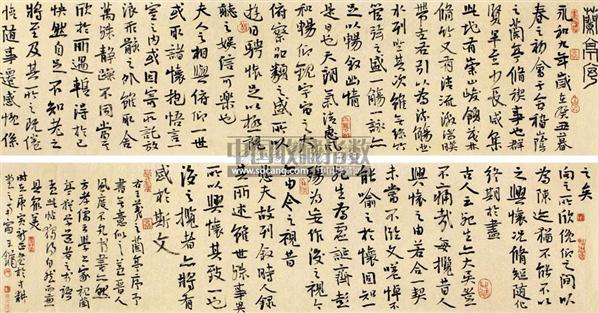 蘭亭序
永和九年歲在癸丑暮
春之初會于會稽山陰
之蘭亭脩稧事也群
賢畢至少長咸集
此地有崇山峻領茂林
脩竹又有清流激湍暎
帶左右引以為流觴曲
水列坐其次雖無絲竹
管弦之盛一觴一詠亦
足以暢叙幽情
是日也天朗氣清惠風
和暢仰觀宇宙之大
俯察品類之盛所以
遊目騁懷足以極視
聽之娛信可樂也
夫人之相與俯仰一世
或取諸懷抱悟言一
室之內或因寄所託放
浪形骸之外雖取舍
萬殊靜躁不同當其
欣於所遇暫得於己
快然自足不知老之
將至及其所之既倦
情隨事遷感慨係
之矣
向之所欣俛仰之間以
為陳迹猶不能不以
之興懷況脩短隨化
終期於盡
古人云死生亦大矣豈
不痛哉每攬昔人
興感之由若合一契
未嘗不臨文嗟悼不
能喻之於懷固知一
死生為虛誕齊彭
殤為妄作後之視今
亦由今之視昔
悲夫故列叙時人錄
其所述雖世殊事異
所以興懷其致一也
後之攬者亦將有
感於斯文
中国收藏指数
www.socang.com